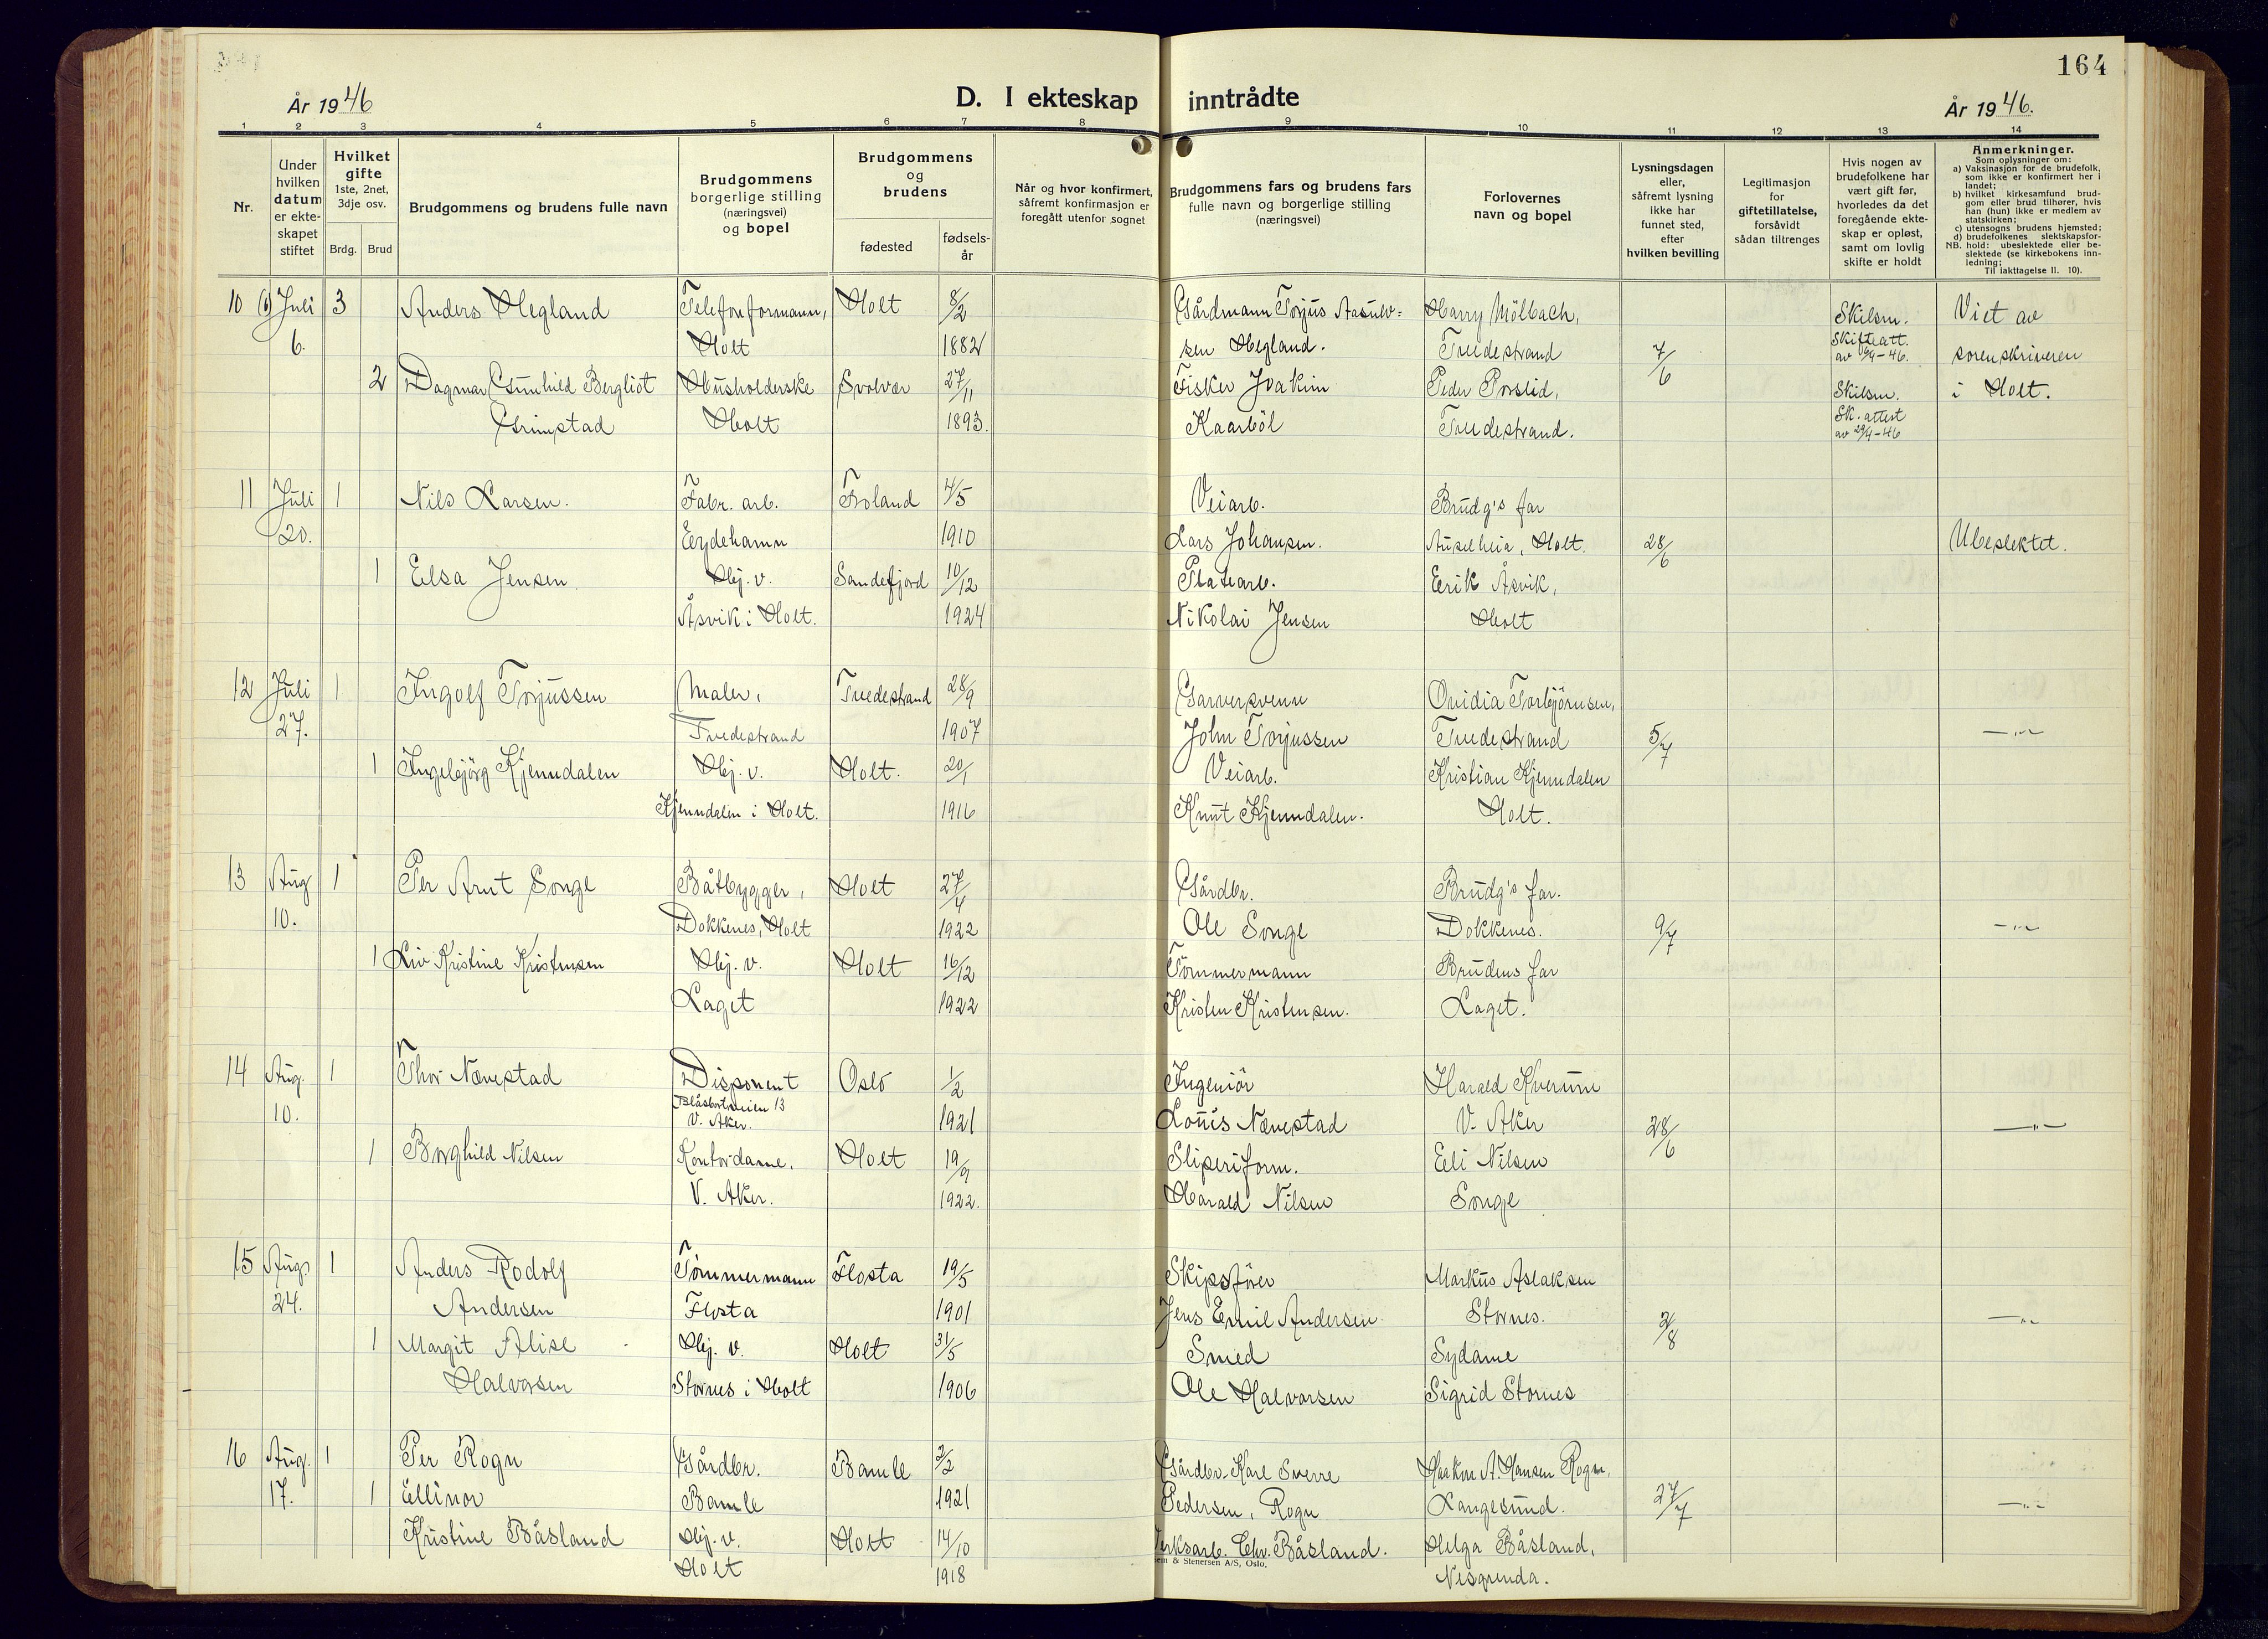 164
År 1946
D. I ekteskap inntrådte
År 1946.
1 2 3 4 5 6 7 8 9 10 11 12 13 14
Nr.
Under hvilken datum er ekteskapet stiftet
Hvilket gifte 1ste, 2net, 3dje osv.
Brdg. Brud
Brudgommens og brudens fulle navn
Brudgommens borgerlige stilling (næringsvei) og bopel
Brudgommens og brudens
fødested
fødselsår
Når og hvor konfirmert, såfremt konfirmasjon er foregått utenfor sognet
Brudgommens fars og brudens fars fulle navn og borgerlige stilling (næringsvei)
Forlovernes navn og bopel
Lysningsdagen eller, såfremt lysning ikke har funnet sted, efter hvilken bevilling
Legitimasjon for giftetillatelse, forsåvidt sådan tiltrenges
Hvis nogen av brudefolkene har vært gift før, hvorledes da det foregående ekteskap er opløst, samt om lovlig skifte er holdt
Anmerkninger.
Som oplysninger om:
a) Vaksinasjon for de brudefolk, som ikke er konfirmert her i landet;
b) hvilket kirkesamfund brudgom eller brud tilhører, hvis han (hun) ikke er medlem av statskirken;
c) utensogns brudens hjemsted;
d) brudefolkenes slektskapsforhold: ubeslektede eller beslektede (se kirkebokens innledning;
NB. Til iakttagelse II. 10).
10 Juli 3 Anders Hegland Telefonformann, Holt 8/2 Gårdmann Torjus Aasulv= Harry Mölbach, Skilsm. Viet av
6. Holt 1882 sen Hegland. Tvedestrand 7/6 Skifteatt. av 6/4-46. sorenskriveren
2 Dagmar Gunhild Bergliot Husholderske Svolvær 27/11 Fisker Joakim Peder Rorslid, Skilsm. i Holt.
Grimstad Holt 1893. Kaarböl Tvedestrand. Sk. attest av 29/4-46
11 Juli 1 Nils Larsen. Fabr. arb. Froland 4/5 Veiarb. Brudg's far
20. Eydehamn 1910 Lars Johansen. Auselheia, Holt. 28/6 Ubeslektet.
1 Elsa Jensen. Hj. v. Sandefjord 10/12 Platearb. Eerik Åsvik,
Åsvik i Holt. 1924 Nikolai Jensen Holt
12 Juli 1 Ingolf Torjussen Maler, Tvedestrand 28/9 Garversvenn Ovidia Torbjörnsen,
27. Tvedestrand 1907 John Torjussen Tvedestrand 5/7 —"—
1 Ingebjörg Kjenndalen Hj. v. Holt. 20/1 Veiarb. Kristian Kjenndalen
Kjenndalen i Holt. 1916 Knut Kjenndalen. Holt.
13 Aug 1 Per Arnt Songe Båtbygger, Holt 27/4 Gårdbr. Brudg's far.
10. Dokkenes, Holt 1922 Ole Songe Dokkenes. 9/7 —"—
1 Liv Kristine Kristensen Hj. v. Holt 16/12 Tömmermann Brudens far
Laget 1922 Kristen Kristensen. Laget.
14 Aug. 1 Thor Nævestad Disponent Oslo 1/2 Ingeniör Harald Kverum
10. 13 V. Aker. 1921 Louis Nævestad V. Aker 28/6 —"—
1 Borghild Nilsen Kontordame. Holt 19/9 Sliperiform. Eli Nilsen
V. Aker. 1922. Harald Nilsen Songe
15 Augs 1 Anders Rodolf Tömmermann Flosta 19/5 Skipsförer Markus Aslaksen
24. Andersen Flosta 1901 Jens Emil Andersen Stornes. 2/8 —"—
1 Margit Alise Hj. v. Holt 31/5 Smed Sydame
Halvorsen Stornes i Holt 1906 Ole Halvorsen Sigrid Stornes
16 Aug. 1 Per Rogn Gårdbr. Bamle 2/2 Gårdbr. Karl Sverre Haakon A. Hansen Rogn,
17. 1 Ellinor Bamle 1921 Pedersen, Rogn Langesund. 27/7 —"—
Kristine Båsland Hj. v. Holt 14/10 Verksarb. Chr. Båsland. Helga Båsland,
Holt 1918 Nesgrenda.
& Stenersen A/S, Oslo.